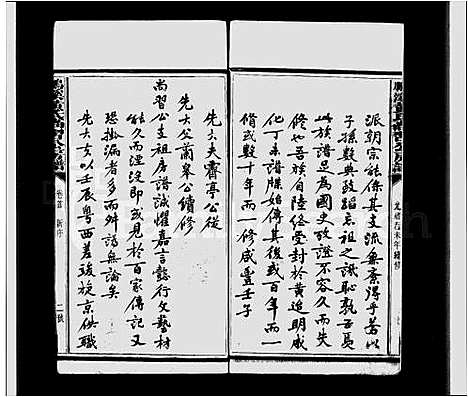 派朝宗能係其支流無紊得乎若以
子孫數典致蹈忘祖之譏恥孰甚焉
此族譜足為國史攷證不容久而失
修也吾族自陸終受封於黃迨明成
化丁未譜牒始傳其後或九十年而
修或數十年而一修咸豐壬子
先大夫齋亭公從
先大父蘭皋公續修
尚習公主祖房譜誠懼嘉言懿行文藝材
能久而湮淀即或見於百家傳記又
恐掛漏者多而舛譌無論矣
先大夫以壬辰粵西差竣旋京供職
卷首 新序
二
光緒乙未年續修